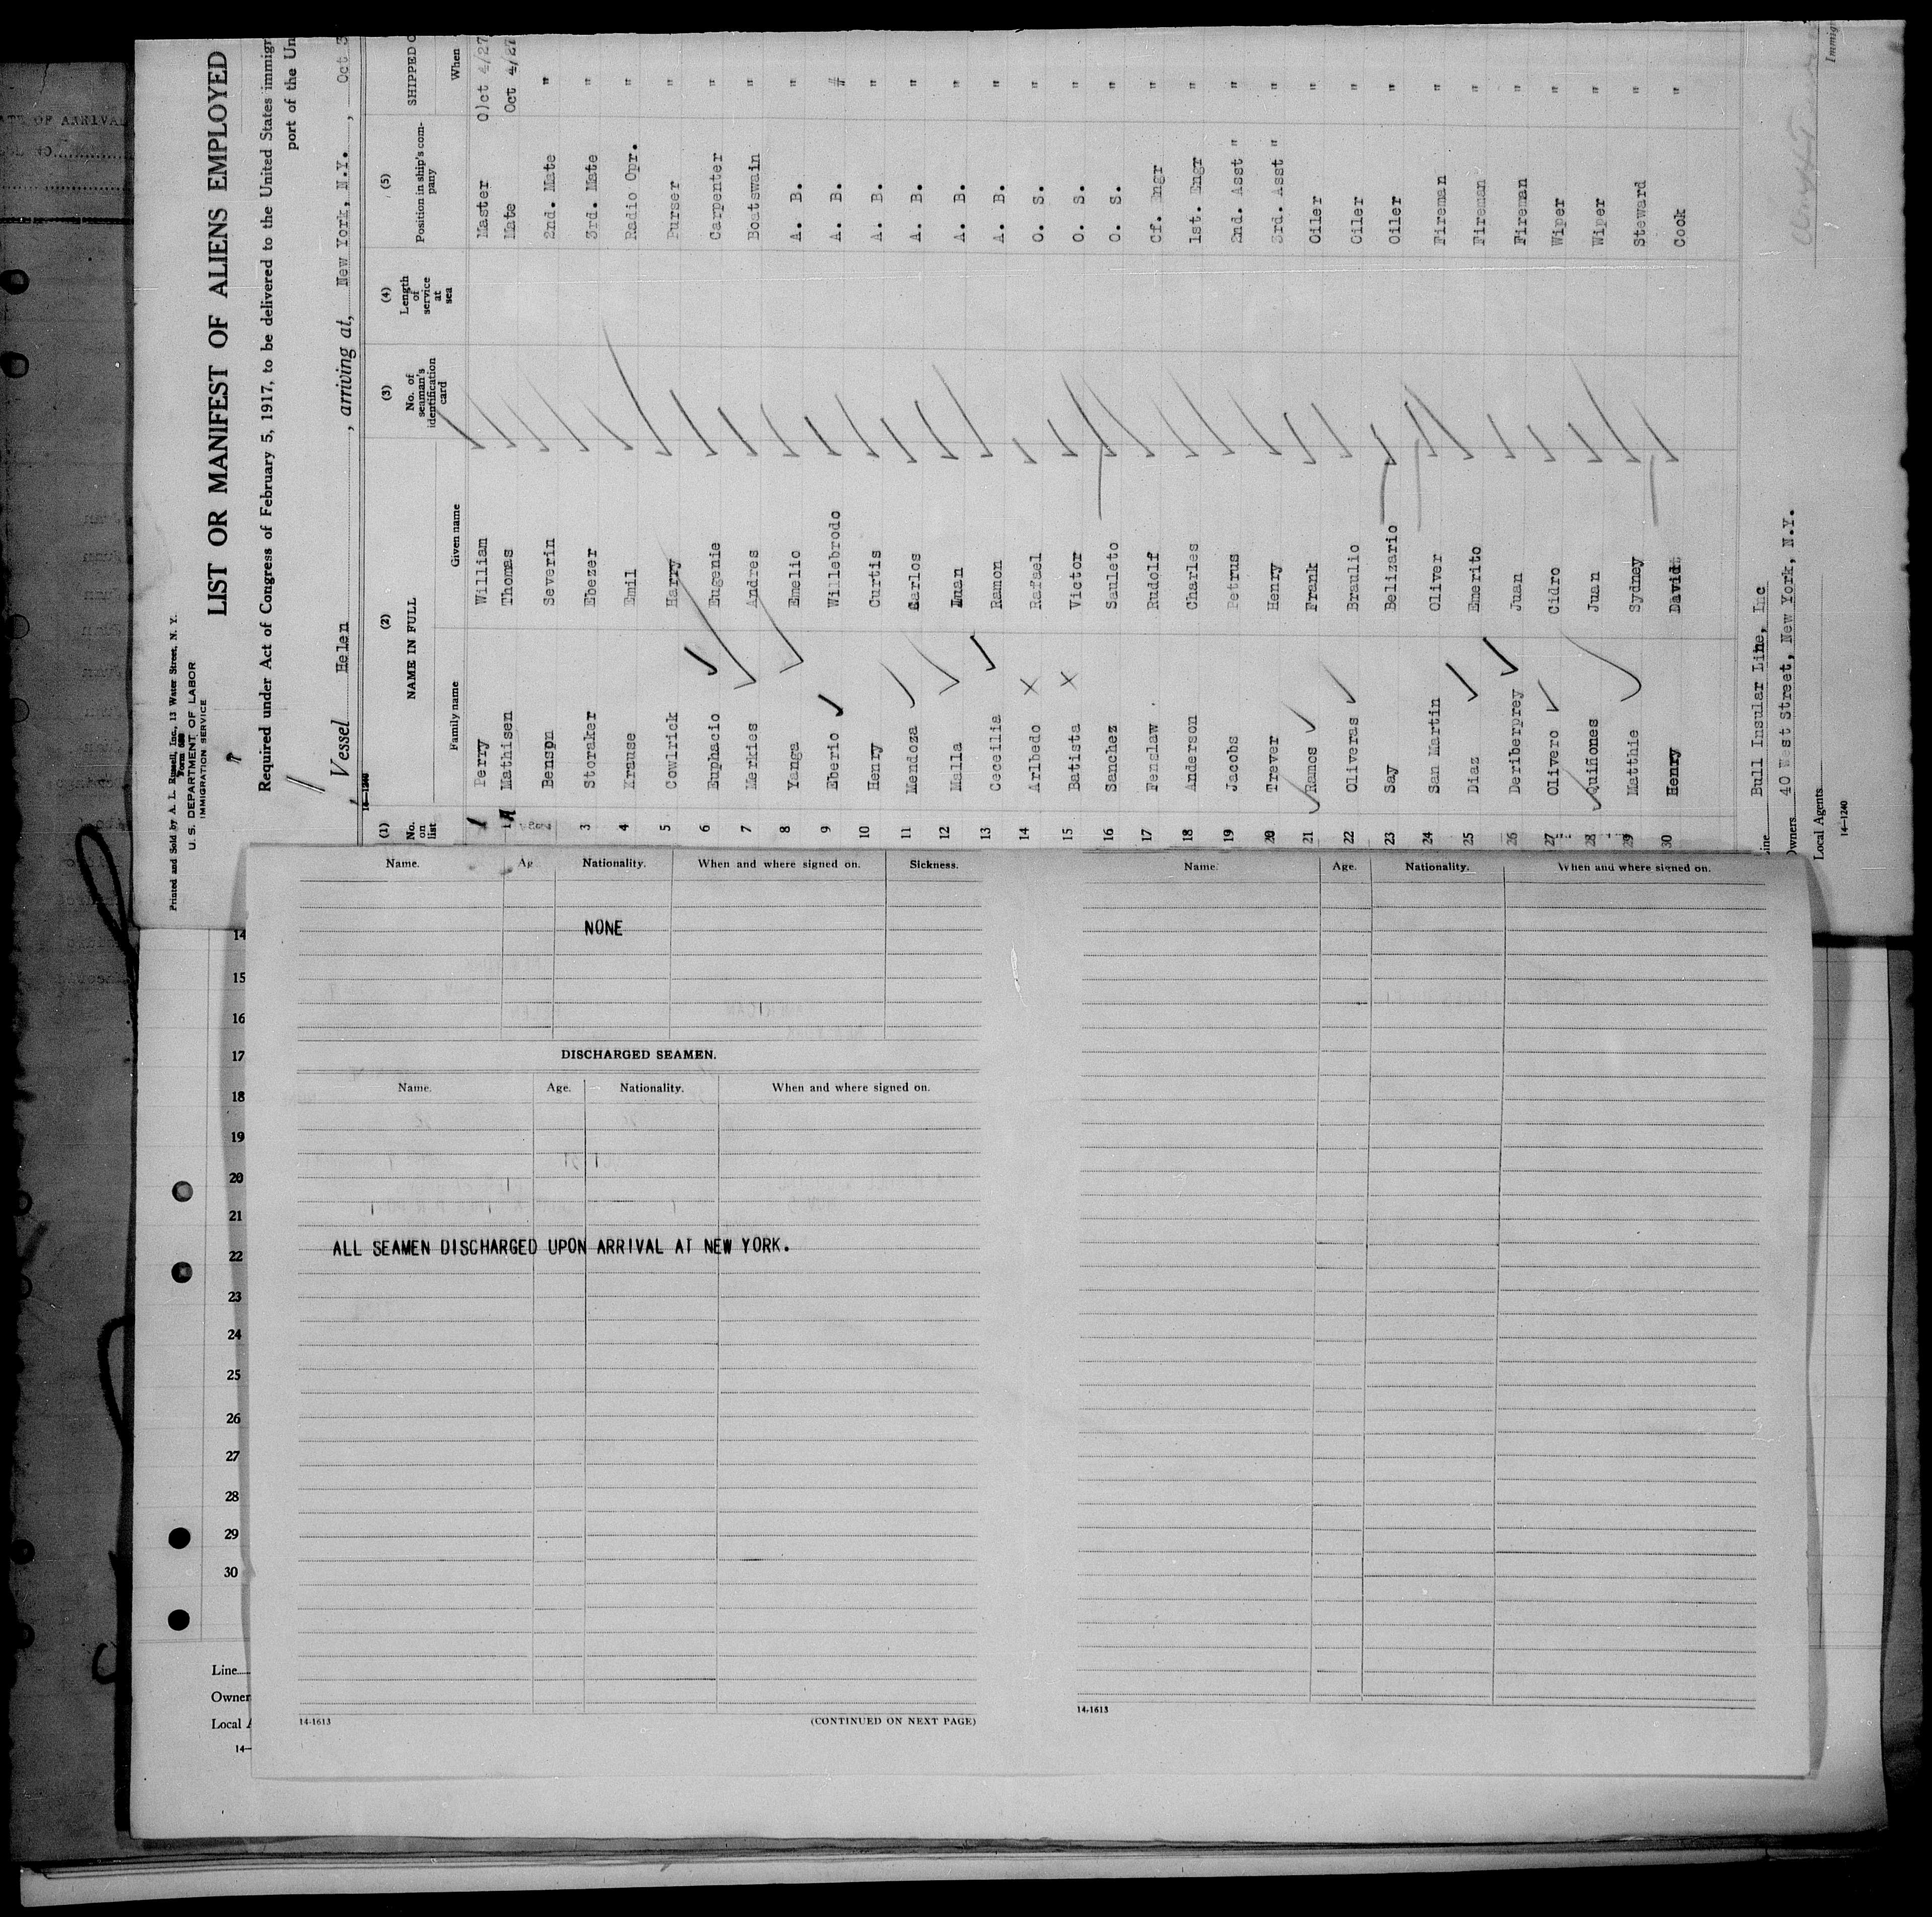 Printed and Sold by A. L. Russell, Inc., 13 Water Street, N. Y.
Form 689
U. S. DEPARTMENT OF LABOR
IMMIGRATION SERVICE
LIST OR MANIFEST OF ALIENS EMPLOYED
Required under Act of Congress of February 5, 1917, to be delivered to the United States immigr
port of the Un
Vessel Helen, arriving at, New York, N.Y., Oct 3
14—1240
(1) (2) (3) (4) (5)
No. on list NAME IN FULL No. of seaman's identification card Length of service at sea Position in ship's company SHIPPED O
Family name Given name When
1 Perry William Master O)ct 4/27
1A Mathisen Thomas Mate Oct 4/27
Benson Severin 2nd. Mate "
3 Storaker Ebezer 3rd. Mate "
4 Krause Emil Radio Opr. "
5 Cowlrick Harry Purser "
6 Euphacio Eugenie Carpenter "
7 Merkies Andres Boatswain "
8 Yanga Emelio A. B. "
9 Eberio Willebrodo A. B. "
10 Henry Curtis A. B. "
11 Mendoza Carlos A. B. "
12 Malla Juan A. B. "
13 Cecelilia Ramon A. B. "
14 Arlbedo Rafael O. S. "
15 Batista Victor O. S. "
16 Sanchez Sauleto O. S. "
17 Fenslaw Rudolf Cf. Engr "
18 Anderson Charles 1st. Engr "
19 Jacobs Petrus 2nd. Asst " "
20 Trever Henry 3rd. Asst " "
21 Ramos Frank Oiler "
22 Oliveras Braulio Oiler "
23 Say Belizario Oiler "
24 San Martin Oliver Fireman "
25 Diaz Emerito Fireman "
26 Deriberprey Juan Fireman "
27 Olivero Cidro Wiper "
28 Quiñones Juan Wiper "
29 Matthie Sydney Steward "
30 Henry David Cook "
Line Bull Insular Line, Inc
Owners 40 West Street, New York, N.Y.
Local Agents
14—1240
Immig
Name. Ag Nationality. When and where signed on. Sickness.
NONE
DISCHARGED SEAMEN.
Name. Age. Nationality. When and where signed on.
ALL SEAMEN DISCHARGED UPON ARRIVAL AT NEW YORK.
14-1613 (CONTINUED ON NEXT PAGE)
Name. Age. Nationality. When and where signed on.
14-1613
14
15
16
17
18
19
20
21
22
23
24
25
26
27
28
29
30
Line
Owner
Local A
14—